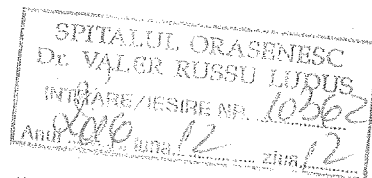 SPITALUL ORASENESC
Dr. VALER RUSSU LUDUS
INTRARE/IESIRE NR. 10362
Anul 2016 luna 12 ziua 12